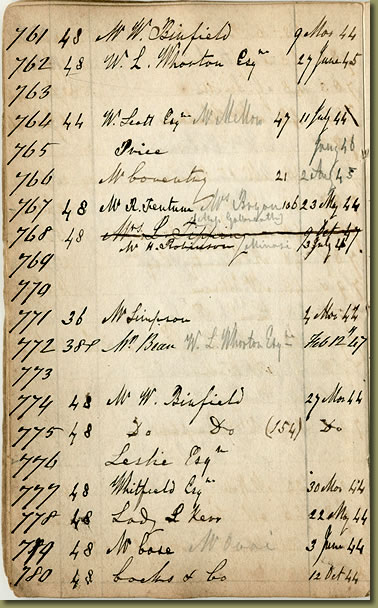 761 48 Mr W. Binfield 9 Mar 44
762 48 W. L. Whorton Esqre 27 June 45
763
764 44 W Scott Esqre Mr Mellon 47 11 July 44
765 Price Jany 46
766 Mr Coventry 21 45
767 48 Mr R. Fentum Mrs Bryan 106 23 May 44
(Miss Galbraith)
768 48 Mrs L. 44
Mr H. Robinson (Minasi) July 47
769
770
771 36 Mr Simpson 4 Mar 44
772 38 Mr Bean W. L. Whorton Esqre Feb 12th 47
773
774 48 Mr W. Binfield 27 Mar 44
775 48 Do Do (154) Do
776 Leslie Esqre
777 48 Whitfield Esqre 30 Mar 44
778 48 Lady L Kerr 22 May 44
779 48 Mr Case 3 June 44
780 48 Cocks & Co 12 Oct 44